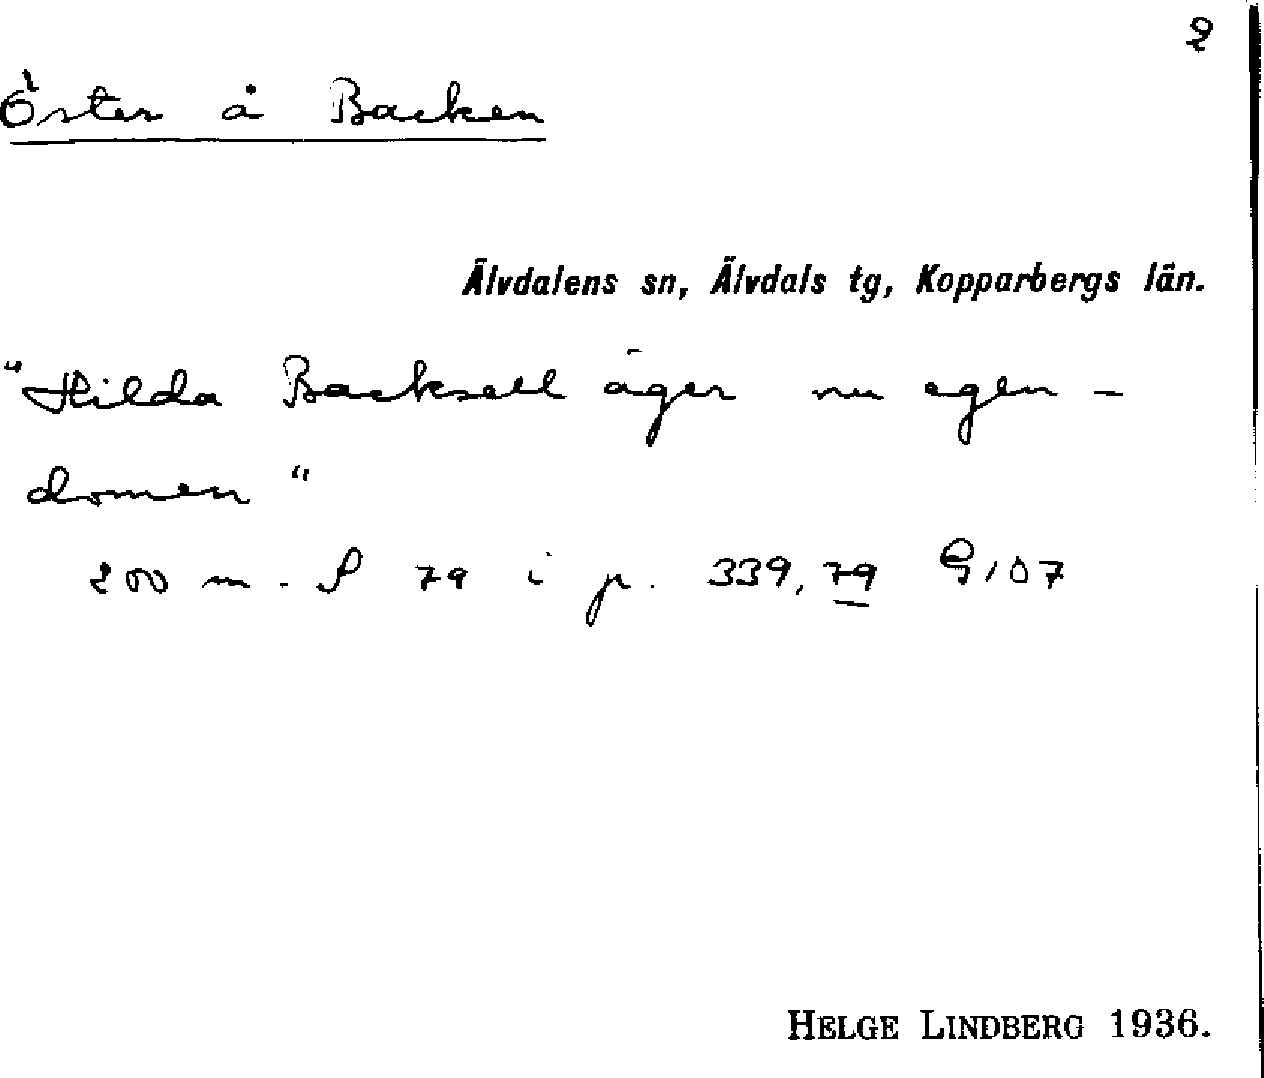 2
Öster å Backen
Älvdalens sn, Älvdals tg, Kopparbergs län.
"Hilda Backsell äger nu egen-
domen"
200 m. S 79 i p. 339, 79 G107
HELGE LINDBERG 1936.